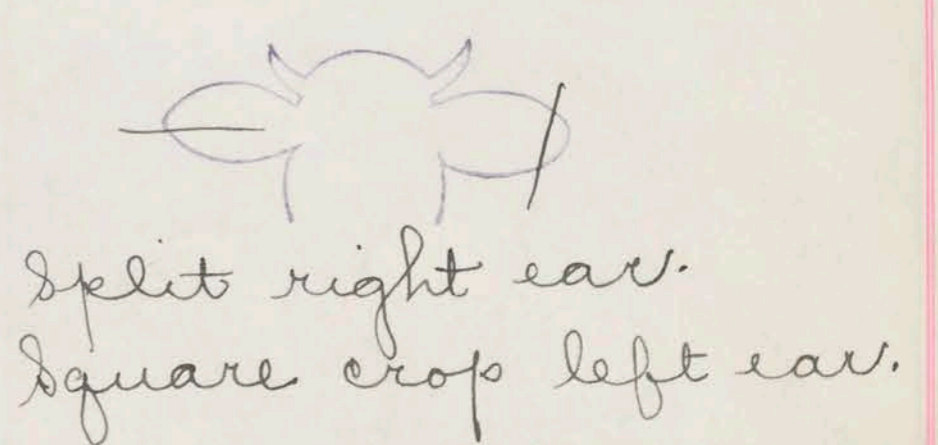 Split right ear.
Square crop left ear.